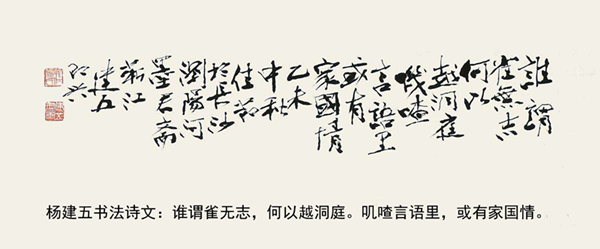 誰謂
雀無志
何以
越洞庭
嘰喳
言語里
或有
家國情
乙未
中秋
佳節
於長沙
瀏陽河
墨斋
江
建五
即兴
杨建五书法诗文：谁谓雀无志，何以越洞庭。叽喳言语里，或有家国情。